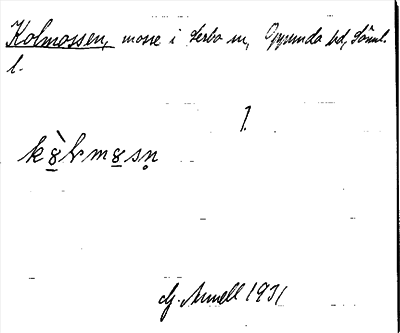 Kolmossen, mosse i Lerbo sn, Oppunda hd, Söml.
l.
1.
kò̤lmo̤sn̥
Cg. Arnell 1931